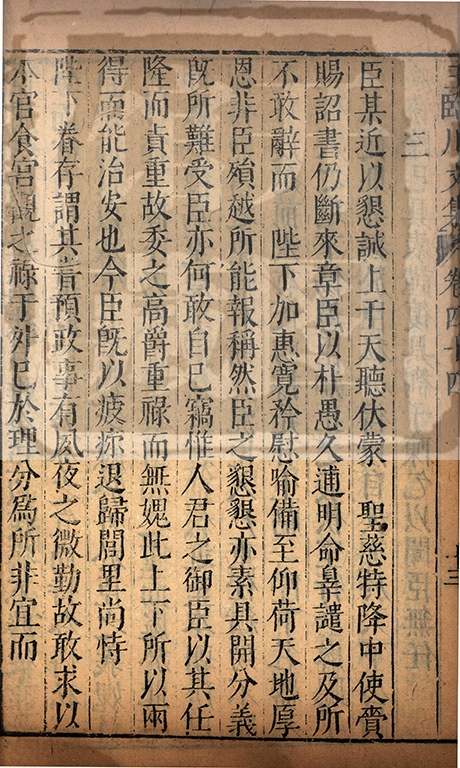 王臨川文集 卷四十四 十三
三
臣某近以懇誠上干天聽伏蒙 聖慈特降中使賫
賜詔書仍斷來章臣以朴愚久逋明命辠譴之及所
不敢辭而 陛下加惠寬矜慰喻備至仰荷天地厚
恩非臣殞越所能報稱然臣之懇懇亦素具開分義
旣所難受臣亦何敢自已竊惟人君之御臣以其任
隆而責重故委之高爵重祿而無媿此上下所以兩
得而能治安也今臣旣以疲痾退歸閭里尚恃
陛下眷存謂其嘗預政事有夙夜之微勤故敢求以
本官食宮觀之祿于外已於理分爲所非宜而